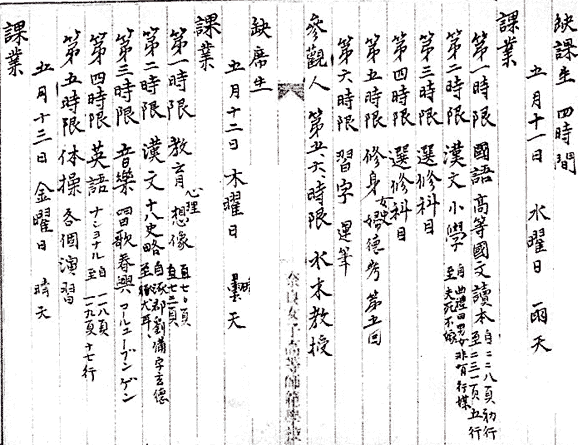 缺課生 四時間
五月十一日 水曜日 雨天
課業
第一時限 國語 高等國文讀本 自二二八頁初行 至二三一頁五行
第二時限 漢文 小學 自曲禮曰男女非有行媒 至夫死不嫁
第三時限 選修科目
第四時限 選修科目
第五時限 修身 女史婦德考 第五回
第六時限 習字 運筆
參觀人 第五、六、時限 水木教授
缺席生
五月十二日 木曜日 曇天
課業
第一時限 教育 心理 想像 自七〇頁 至七二頁
第二時限 漢文 十八史略 自涿郡劉備字玄德
第三時限 音樂 唱歌春興 コールユーブンゲン
第四時限 英語 ナショナル 自一一八頁 至一一九頁十七行
第五時限 体操 各個演習
五月十三日 金曜日 晴天
課業
奈良女子高等師範學校